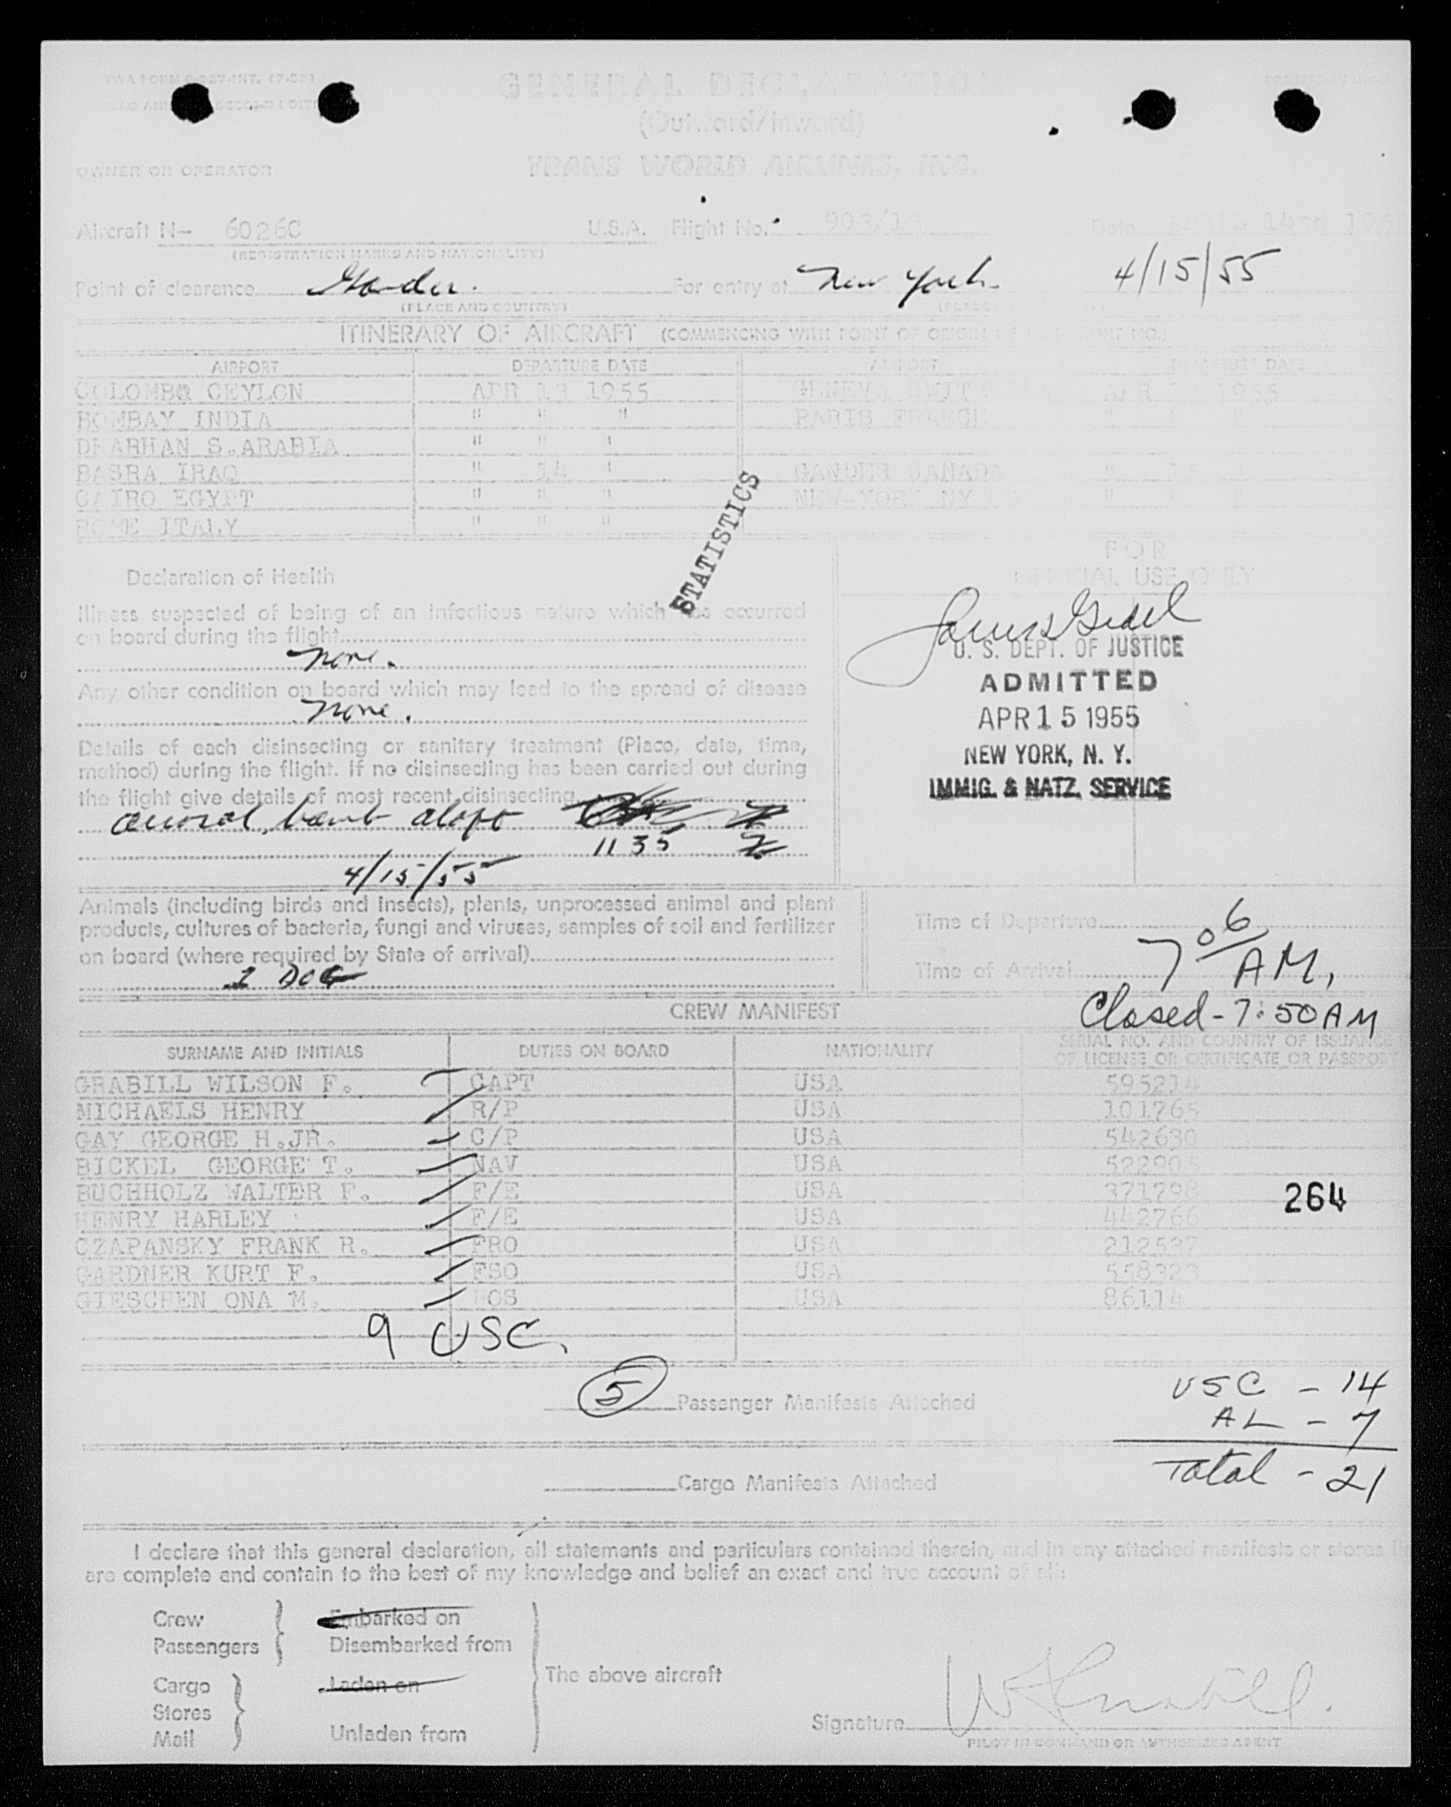 GENERAL DECLARATION
(Outward/Inward)
OWNER OR OPERATOR TRANS WORLD AIRLINES, INC.
Aircraft N- 6026C U.S.A. Flight No. 903/1 Date 14TH
(REGISTRATION MARKS AND NATIONALITY)
Point of clearance Gander. For entry at New York. 4/15/55
(PLACE AND COUNTRY) (PLACE
ITINERARY OF AIRCRAFT (COMMENCING WITH POINT OF ORIGIN
AIRPORT DEPARTURE DATE AIRPORT DEPARTURE DATE
COLOMBO CEYLON APR 13 1955 APR 1955
BOMBAY INDIA " " " PARIS FRANCE
DHARHAN S.ARABIA " " "
BASRA IRAQ " 14 " GANDER CANADA "
CAIRO EGYPT " " " NEW-YORK NY "
ROME ITALY " " "
STATISTICS
FOR
OFFICIAL USE ONLY
Declaration of Health
Illness suspected of being of an infectious nature which has occurred
on board during the flight
None.
Any other condition on board which may lead to the spread of disease
None.
Details of each disinsecting or sanitary treatment (Place, date, time,
method) during the flight. If no disinsecting has been carried out during
the flight give details of most recent disinsecting
bomb
1135 Z
4/15/55
U. S. DEPT. OF JUSTICE
ADMITTED
APR 15 1955
NEW YORK, N. Y.
IMMIG. & NATZ. SERVICE
Animals (including birds and insects), plants, unprocessed animal and plant
products, cultures of bacteria, fungi and viruses, samples of soil and fertilizer
on board (where required by State of arrival)
1 DOG
Time of Departure
Time of Arrival 7 06 AM.
Closed - 7:50 AM
CREW MANIFEST
SURNAME AND INITIALS DUTIES ON BOARD NATIONALITY SERIAL NO. AND COUNTRY OF ISSUANCE
OF LICENSE OR CERTIFICATE OR PASSPORT
GRABILL WILSON F. CAPT USA 595214
MICHAELS HENRY R/P USA 101765
GAY GEORGE H.JR. C/P USA 542630
BICKEL GEORGE T. NAV USA 52290
BUCHHOLZ WALTER F. F/E USA 371798
HENRY HARLEY F/E USA 442766
264
CZAPANSKY FRANK R. FRO USA 212537
GARDNER KURT F. FSO USA 558323
GIESCHEN ONA M. HOS USA 86114
9 USC.
5 Passenger Manifests Attached
USC - 14
AL - 7
Total - 21
Cargo Manifests Attached
I declare that this general declaration, all statements and particulars contained therein, and in any attached manifests or stores
are complete and contain to the best of my knowledge and belief an exact and true account of all:
Crew
Passengers
Embarked on
Disembarked from
Cargo
Stores
Mail
Laden on
Unladen from
The above aircraft
Signature W F Grabill.
PILOT IN COMMAND OR AUTHORIZED AGENT